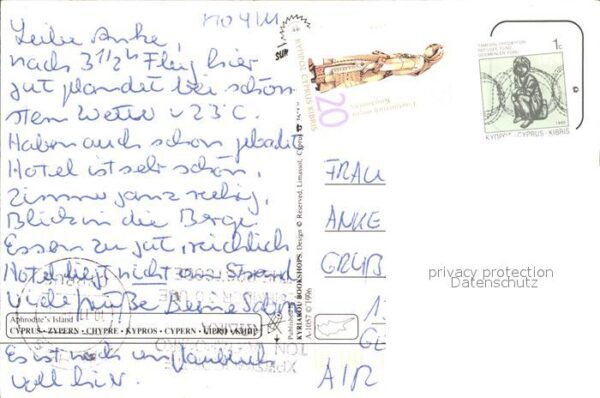 Liebe Anke,
nach 3 1/2 h Flug hier
gut gelandet bei schön
stem Wetter u 23°C.
Haben auch schon gebadet
Hotel ist sehr schön,
Zimmer ganz ruhig,
Blick in die Berge
Essen zu gut, reichlich
Hotel liegt nicht am Strand
Viele Grüße
Es ist noch unglaublich
voll hier.
Aphrodite's Island
CYPRUS • ZYPERN • CHYPRE • KYPROS • CYPERN •
KYRIAKOU BOOKSHOPS. Design © Reserved, Limassol, Cyprus
A-1057 © 1996
20
1c
REFUGEE FUND
ΚΥΠΡΟΣ · CYPRUS · KIBRIS
FRAU
ANKE
GRUß
AIR
privacy protection
Datenschutz